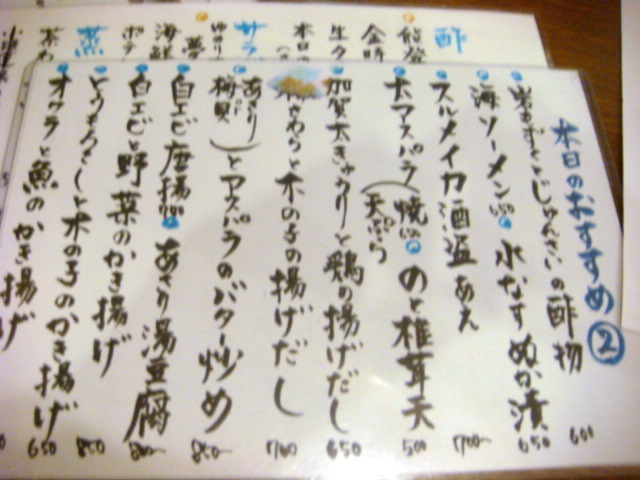 本日のおすすめ②
岩もずくとじゅんさいの酢物 600
海ソーメン 650 水なすぬか漬 650
スルメイカ酒盗あえ 700
太アスパラ(焼 天ぷら) 650 のと椎茸天 500
加賀太きゅうりと鶏の揚げだし 650
さわらと木の子の揚げだし 700
あさり 梅貝)とアスパラのバター炒め 850
白エビ唐揚 700 あさり湯豆腐 800
白エビと野菜のかき揚げ 800
とうもろこしと木の子のかき揚げ 850
オクラと魚のかき揚げ 650
かき揚げ
酢
能登
金時
生タ
本日
サラ
海鮮
ポテ
蒸
茶わ